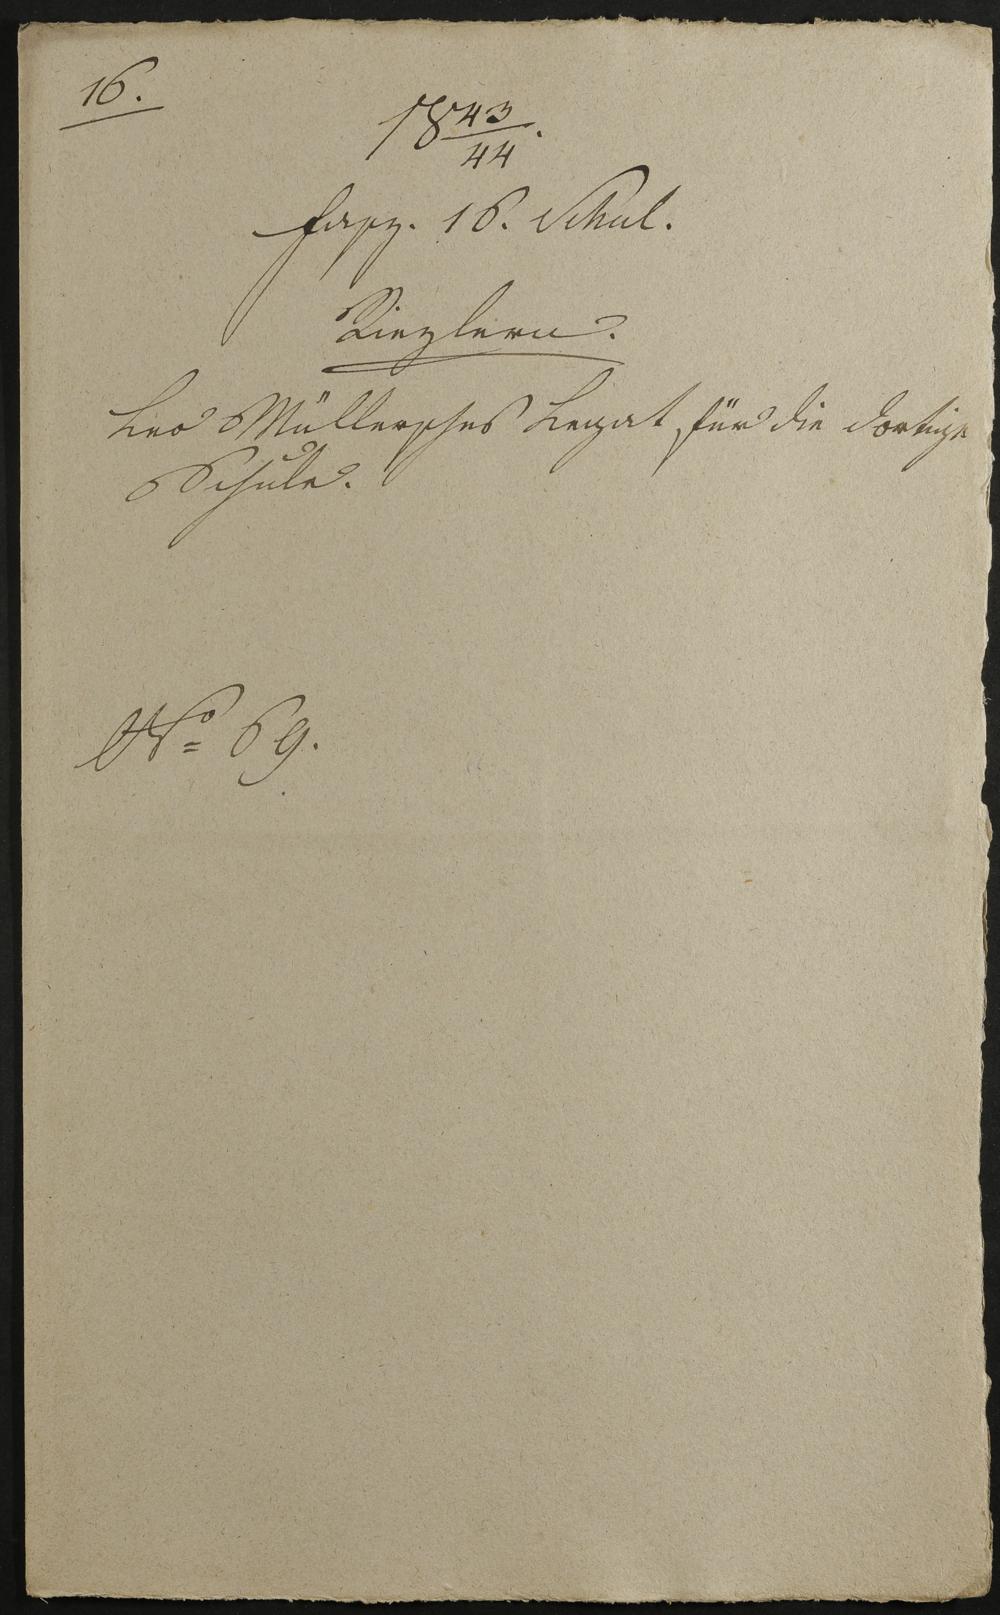 16.
18 43/44.
Fasz. 16. Schul.
Riezlern.
Leo Müllersches Legat für die dortige
Schule.
No 69.